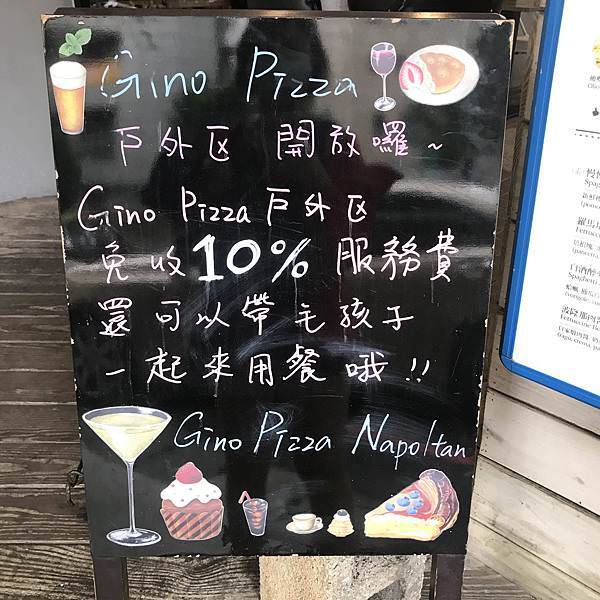 Gino Pizza
戶外区 開放囉~
Gino Pizza 戶外区
免收 10% 服務費
還可以帶毛孩子
一起來用餐哦!!
Gino Pizza Napoltan
羅馬
Fettuccine
白酒
Spaghetti